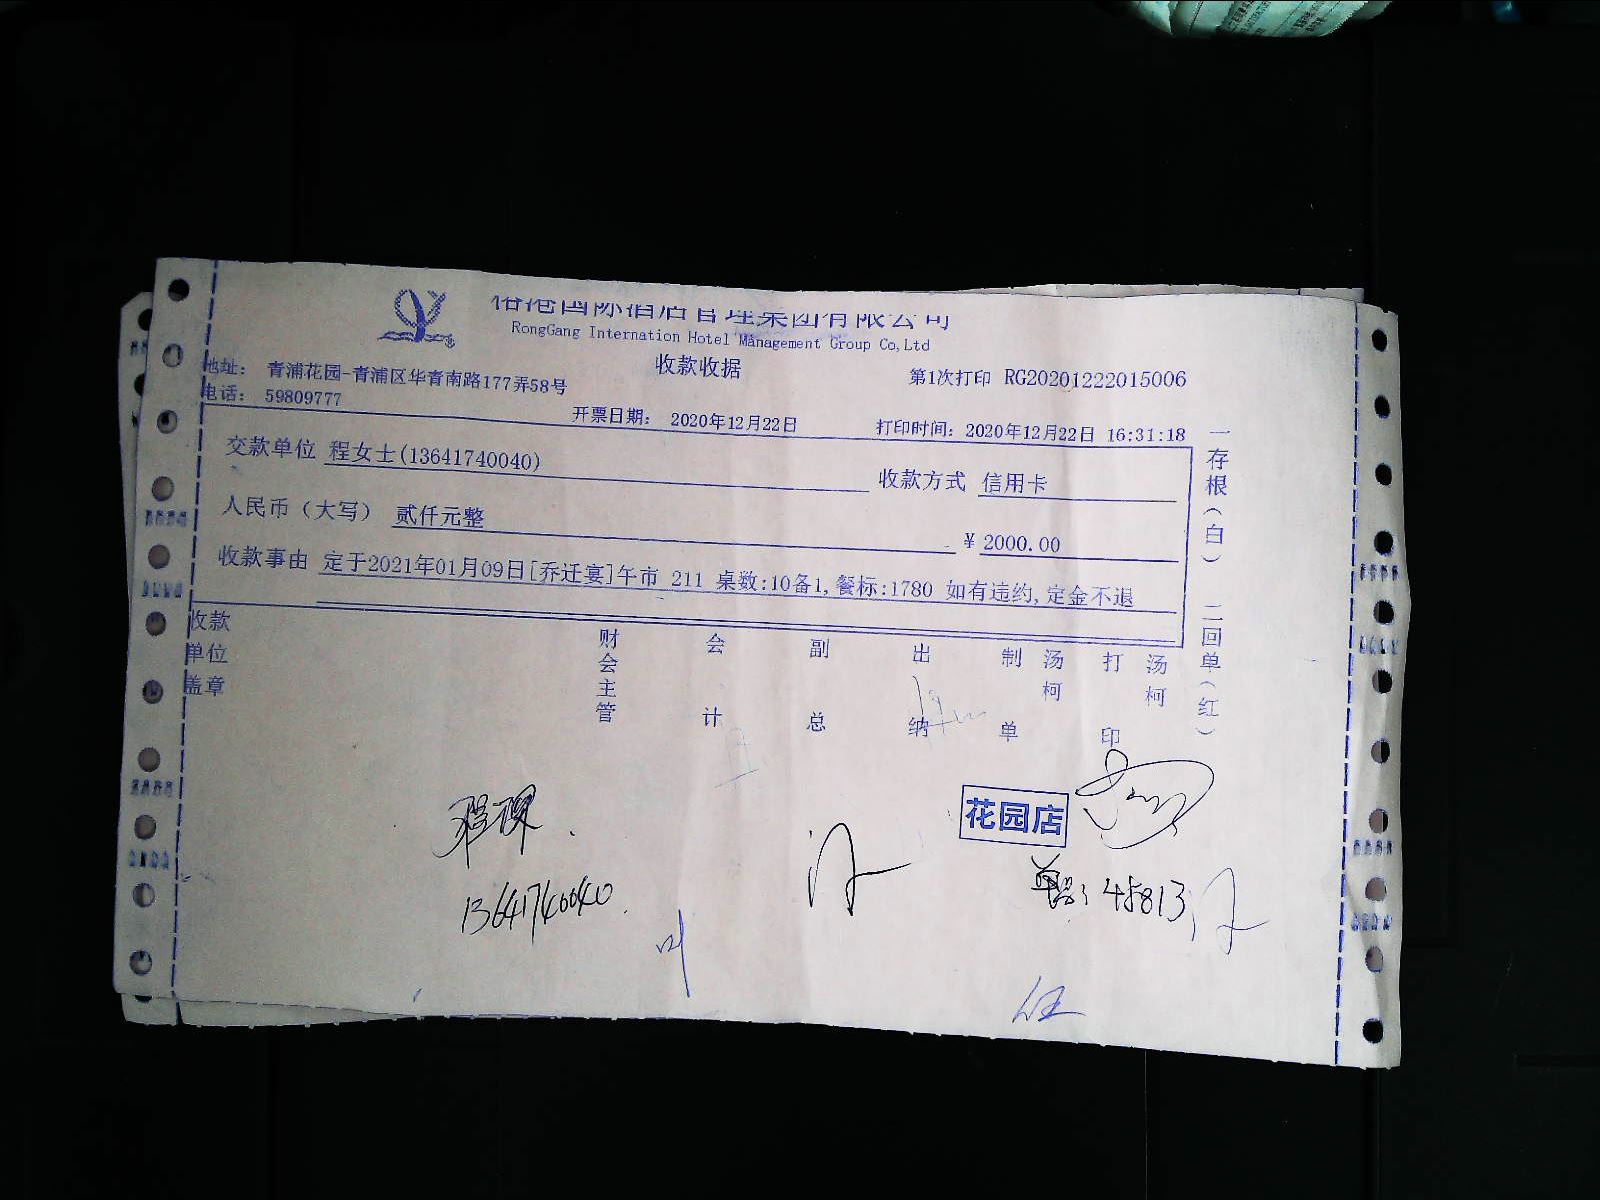 国际酒店管理集团有限公司
RongGang Internation Hotel Management Group Co,Ltd
收款收据
第1次打印 RG20201222015006
地址: 青浦花园-青浦区华青南路177弄58号
电话: 59809777
开票日期: 2020年12月22日
打印时间: 2020年12月22日 16:31:18
交款单位 程女士(13641740040)
收款方式 信用卡
人民币(大写) 贰仟元整
¥ 2000.00
收款事由 定于2021年01月09日[乔迁宴]午市 211 桌数:10备1,餐标:1780 如有违约,定金不退
一存根(白) 二回单(红)
收款单位盖章
财会主管
会计
副总
出纳
制单
汤柯
打印
汤柯
花园店
13641740040
45813